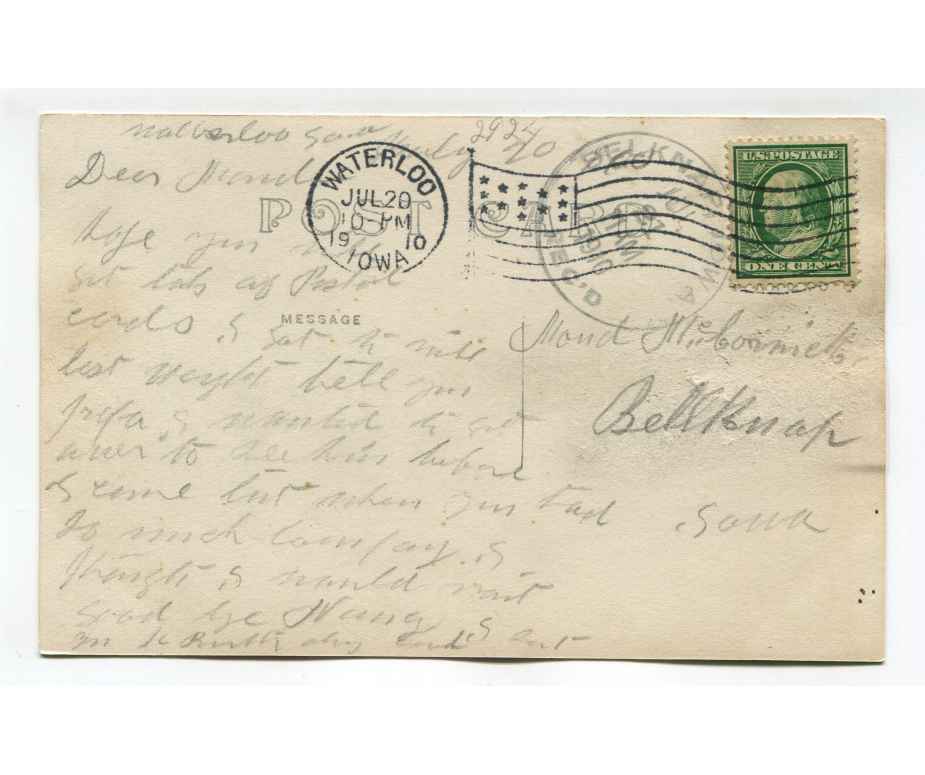 Waterloo Iowa July 20
2924
Dear Maud
POST CARD
WATERLOO
JUL 20
10-PM
19 10
IOWA
BELKNAP IOWA
JUL
1910
REC'D
U.S. POSTAGE
ONE CENT
MESSAGE
Hope you will
get lots of Postal
cards I got to
last tell you
papa I wanted to get
over to see him before
I came but when you had
so much Company I
thought I would wait
Good bye
Birth day Card I
Maud McCormick
Bellknap
Iowa